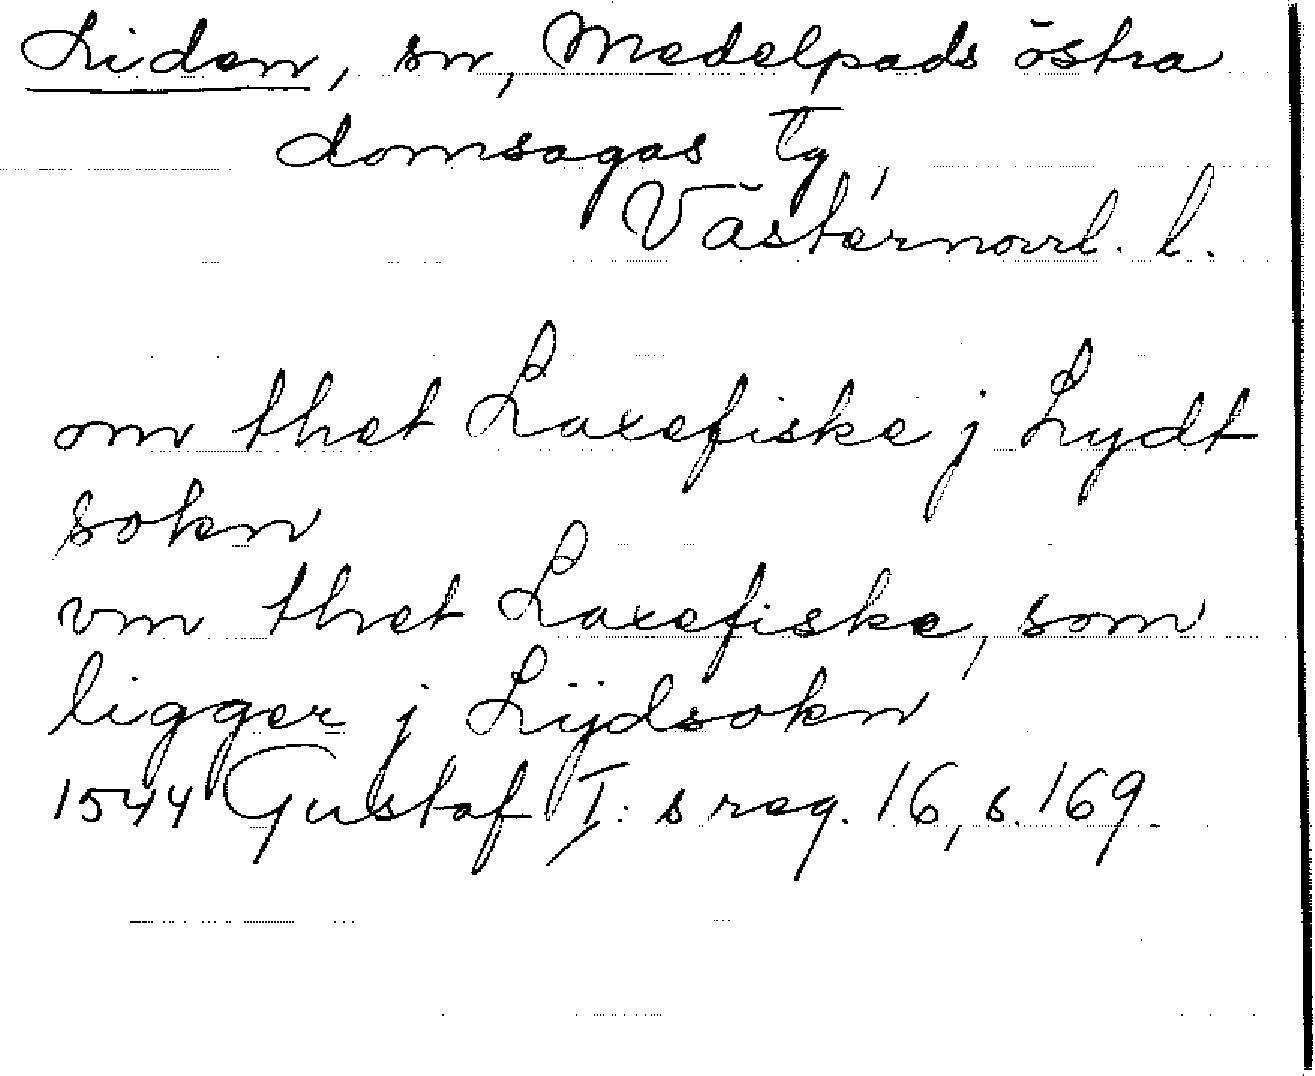 Liden, sn, Medelpads östra
domsagas Tg,
Västernorrl. l.
om thet Laxefiske j Lydt
sokn
vm thet Laxefiske, som
ligger j Lijdsokn
1544 Gustaf I: s reg. 16, s. 169.